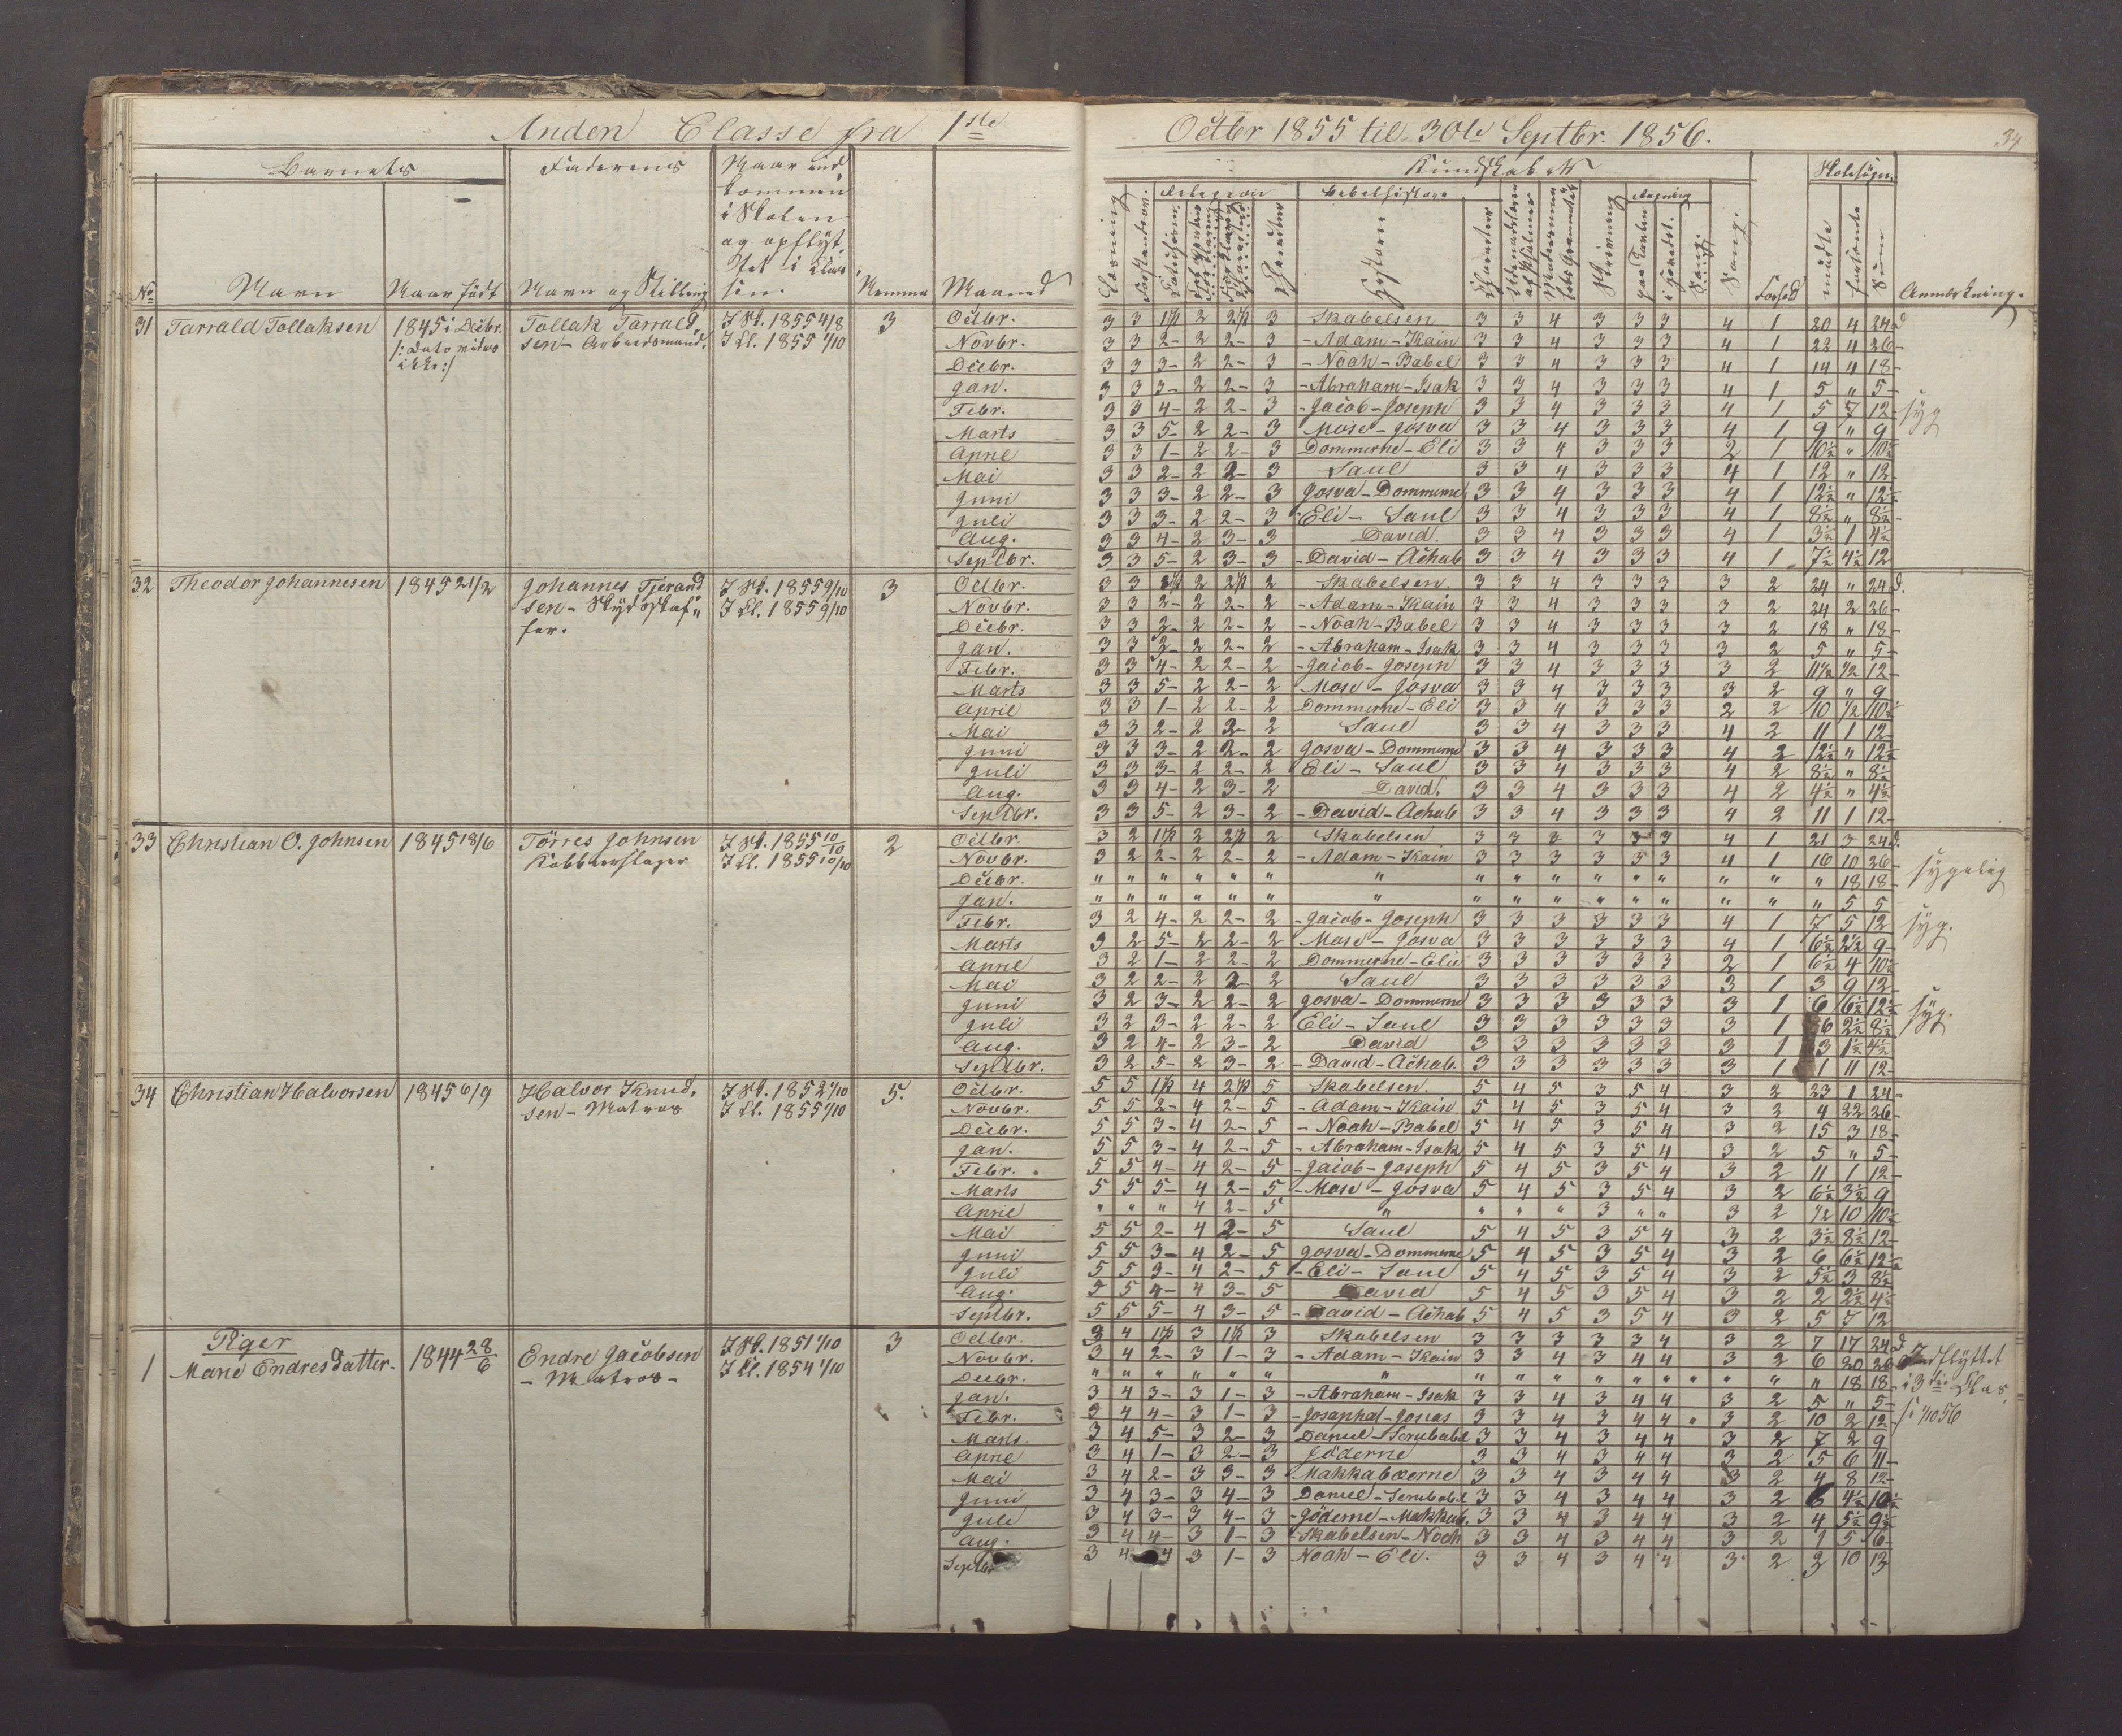 Anden Classe fra 1ste
Octbr 1855 til 30te Septbr. 1856.
34
Barnets
Faderens
Naar ind
kommen
i Skolen
og opflyt
tet i Clas
sen.
No
Navn
Naar født
Navn og Stilling
Nemme
Maaned
Kundskaber
Religion
Bibelhistorie
Regning
Skolesøgn.
Læsning
Historien
Skrivning
Sang.
Forhold
mødte
forsømte
Sum
Anmærkning.
31 Tarrald Tollaksen 1845 i Decbr. Tollak Tarrald I Sk. 1855 4/8 3
/: Dato vides sen - Arbeidsmand. I Cl. 1855 1/10
ikke :/
Octbr. 3 3 1 2 2 3 Skabelsen 3 3 4 3 3 3 4 1 20 4 24 d
Novbr. 3 3 2- 2 2- 3 - Adam - Kain 3 3 4 3 3 3 4 1 22 4 26-
Decbr. 3 3 3- 2 2- 3 - Noah - Babel 3 3 4 3 3 3 4 1 14 4 18-
Jan. 3 3 3- 2 2- 3 - Abraham - Isak 3 3 4 3 3 3 4 1 5 " 5-
Febr. 3 3 4- 2 2- 3 - Jacob - Joseph 3 3 4 3 3 3 4 1 5 7 12- syg
Marts 3 3 5- 2 2- 3 Mose - Josva 3 3 4 3 3 3 4 1 9 " 9
April 3 3 1- 2 2- 3 Dommerne - Eli 3 3 4 3 3 3 2 1 10½ " 10½
Mai 3 3 2- 2 2- 3 Saul 3 3 4 3 3 3 4 1 12 " 12
Juni 3 3 3- 2 2- 3 Josva - Dommerne 3 3 4 3 3 3 4 1 12½ " 12½
Juli 3 3 3- 2 2- 3 - Eli - Saul 3 3 4 3 3 3 4 1 8½ " 8½
Aug. 3 3 4- 2 3- 3 David. 3 3 4 3 3 3 4 1 3½ 1 4½
Septbr. 3 3 5- 2 3- 3 - David - Achab 3 3 4 3 3 3 4 1 7½ 4½ 12
32 Theodor Johannesen 1845 21/2 Johannes Tjerand I Sk. 1855 9/10 3
sen - Skydsskaf I Cl. 1855 9/10
fer.
Octbr. 3 3 2 2 2 Skabelsen. 3 3 4 3 3 3 3 2 24 " 24 d.
Novbr. 3 3 2- 2 2- 2 - Adam - Kain 3 3 4 3 3 3 3 2 24 2 26-
Decbr. 3 3 2- 2 2- 2 - Noah - Babel 3 3 4 3 3 3 3 2 18 " 18-
Jan. 3 3 2 2- 2 - Abraham - Isak 3 3 4 3 3 3 3 2 5 " 5-
Febr. 3 3 4- 2 2- 2 - Jacob - Joseph 3 3 4 3 3 3 3 2 11½ ½ 12-
Marts 3 3 5- 2 2- 2 Mose - Josva 3 3 4 3 3 3 3 2 9 " 9
April 3 3 1- 2 2- 2 Dommerne - Eli 3 3 4 3 3 3 2 2 10 ½ 10½
Mai 3 3 2- 2 2- 2 Saul 3 3 4 3 3 3 4 2 11 1 12
Juni 3 3 3- 2 2- 2 Josva - Dommerne 3 3 4 3 3 3 4 2 12½ " 12½
Juli 3 3 3- 2 2- 2 Eli - Saul 3 3 4 3 3 3 4 2 8½ " 8½
Aug. 3 3 4- 2 3- 2 David. 3 3 4 3 3 3 4 2 4½ " 4½
Septbr. 3 3 5- 2 3- 2 - David - Achab 3 3 4 3 3 3 4 2 11 1 12-
33 Christian O. Johnsen 1845 18/6 Törres Johnsen I Sk. 1855 10/10 2
Kobberslager I Cl. 1855 10/10
Octbr. 3 2 1 2 2 2 Skabelsen 3 3 3 3 3 4 1 21 3 24 d.
Novbr. 3 2 2- 2 2- 2 - Adam - Kain 3 3 3 3 3 3 4 1 16 10 26- sygelig
Decbr. " " " " " " " " " " " " " " " " 18 18-
Jan. " " " " " " " " " " " " " " " " 5 5
Febr. 3 2 4- 2 2- 2 - Jacob - Joseph 3 3 3 3 3 3 4 1 7 5 12 syg.
Marts 3 2 5- 2 2- 2 Mose - Josva 3 3 3 3 3 3 4 1 6½ 2½ 9-
April 3 2 1- 2 2- 2 Dommerne - Elie 3 3 3 3 3 3 2 1 6½ 4 10½
Mai 3 2 2- 2 2- 2 Saul 3 3 3 3 3 3 3 1 3 9 12-
Juni 3 2 3- 2 2- 2 Josva - Dommerne 3 3 3 3 3 3 3 1 6 6½ 12½ syg.
Juli 3 2 3- 2 2- 2 Eli - Saul 3 3 3 3 3 3 3 1 6 2½ 8½
Aug. 3 2 4- 2 3- 2 David 3 3 3 3 3 3 3 1 3 1½ 4½
Septbr. 3 2 5- 2 3- 2 - David - Achab. 3 3 3 3 3 3 3 1 1 11 12-
34 Christian Halvorsen 1845 6/9 Halvor Knud I Sk. 1852 1/10 5.
sen - Matros I Cl. 1855 1/10
Octbr. 5 5 1 4 2 5 Skabelsen. 5 4 5 3 5 4 3 2 23 1 24-
Novbr. 5 5 2- 4 2- 5 - Adam - Kain 5 4 5 3 5 4 3 2 4 22 26-
Decbr. 5 5 3- 4 2- 5 - Noah - Babel 5 4 5 3 5 4 3 2 15 3 18-
Jan. 5 5 3- 4 2- 5 - Abraham - Isak 5 4 5 3 5 4 3 2 5 " 5-
Febr. 5 5 4- 4 2- 5 - Jacob - Joseph 5 4 5 3 5 4 3 2 11 1 12-
Marts 5 5 5- 4 2- 5 - Mose - Josva 5 4 5 3 5 4 3 2 6½ 3½ 9
April " " " 4 2- 5 " " " " 3 " " 3 2 ½ 10 10½
Mai 5 5 2- 4 2- 5 Saul 5 4 5 3 5 4 3 2 3½ 8½ 12-
Juni 5 5 3- 4 2- 5 Josva - Dommerne 5 4 5 3 5 4 3 2 6 6½ 12½
Juli 5 5 3- 4 2- 5 - Eli - Saul 5 4 5 3 5 4 3 2 5½ 3 8½
Aug. 5 5 4- 4 3- 5 David 5 4 5 3 5 4 3 2 2 2½ 4½
Septbr. 5 5 5- 4 3- 5 - David - Achab 5 4 5 3 5 4 3 2 5 7 12
Piger
1 Marie Endresdatter- 1844 28/6 Endre Jacobsen I Sk. 1851 1/10 3
- Matros - I Cl. 1854 1/10
Octbr. 3 4 1 3 1 3 Skabelsen 3 3 3 3 3 4 3 2 7 17 24 d
Novbr. 3 4 2- 3 1- 3 - Adam - Kain 3 3 4 3 4 4 3 2 6 20 26 Indflyttet
Decbr. " " " " " " " " " " " " " " " " 18 18- i 3die Clas
Jan. 3 4 3- 3 1- 3 - Abraham - Isak 3 3 4 3 4 4 3 2 5 " 5-
Febr. 3 4 4- 3 1- 3 - Josaphat - Josias 3 3 4 3 4 4 3 2 10 2 12- 1/10 56
Marts. 3 4 5- 3 2- 3 Daniel - Serubabel 3 3 4 3 4 4 3 2 7 2 9
April 3 4 1- 3 2- 3 Jöderne 3 3 4 3 4 4 3 2 5 6 11-
Mai 3 4 2- 3 3- 3 Makkabæerne 3 3 4 3 4 4 3 2 4 8 12-
Juni 3 4 3- 3 4- 3 Daniel - Serubabel 3 3 4 3 4 4 3 2 6 4½ 10½
Juli 3 4 3- 3 4- 3 - Jöderne - Makkab. 3 3 4 3 4 4 3 2 4 5½ 9½
Aug. 3 4 4- 3 1- 3 - Skabelsen - Noah 3 3 4 3 4 4 3 2 1 5 6-
Septbr 3 4 4 3 1- 3 Noah - Eli. 3 3 4 3 4 4 3 2 2 10 12